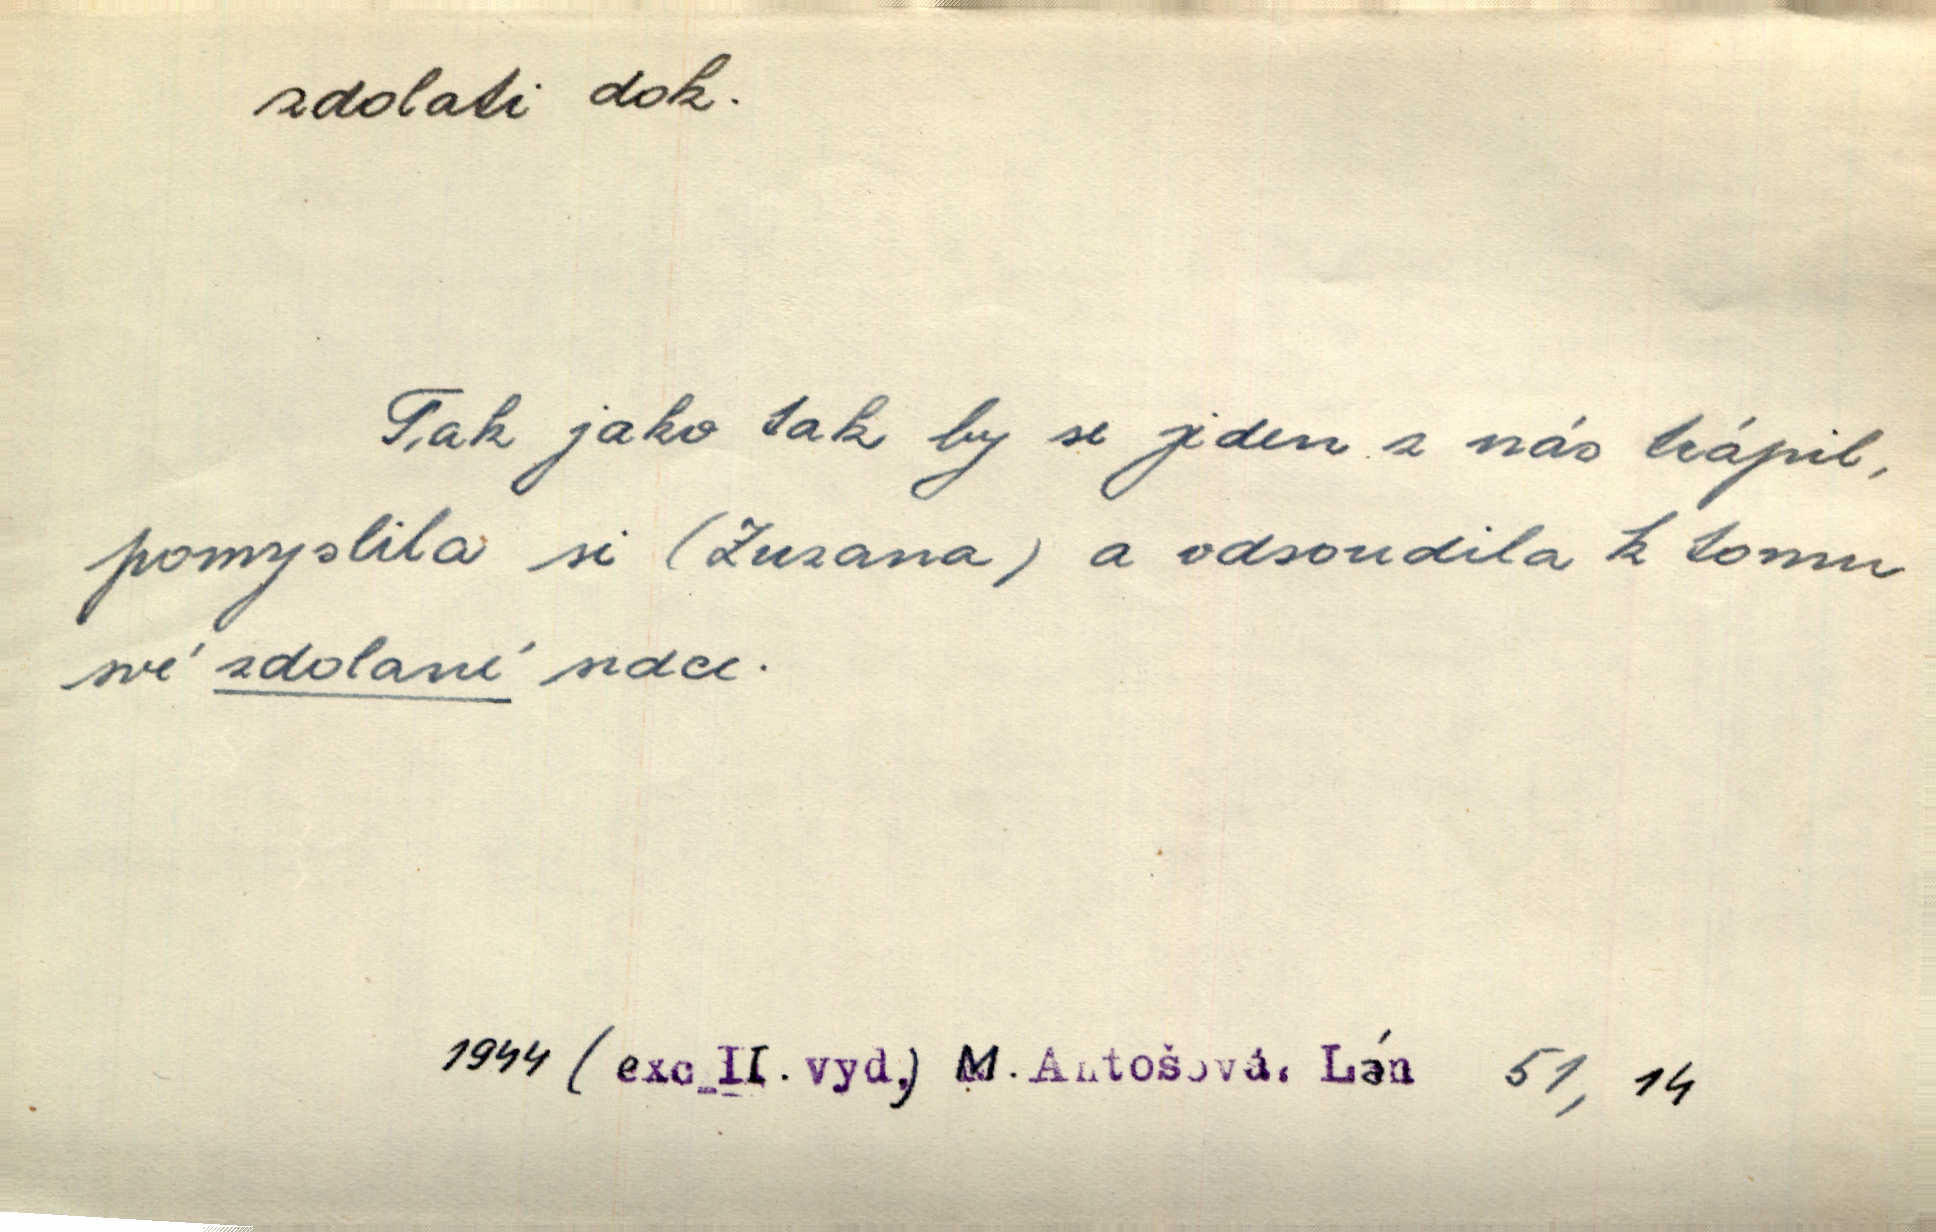 zdolati dok.
Tak jako tak by se jeden z nás trápil,
pomyslila si (Zuzana) a odsoudila k tomu
své zdolané srdce.
1944 (exc. II. vyd.) M. Antošová, Lán 51, 14